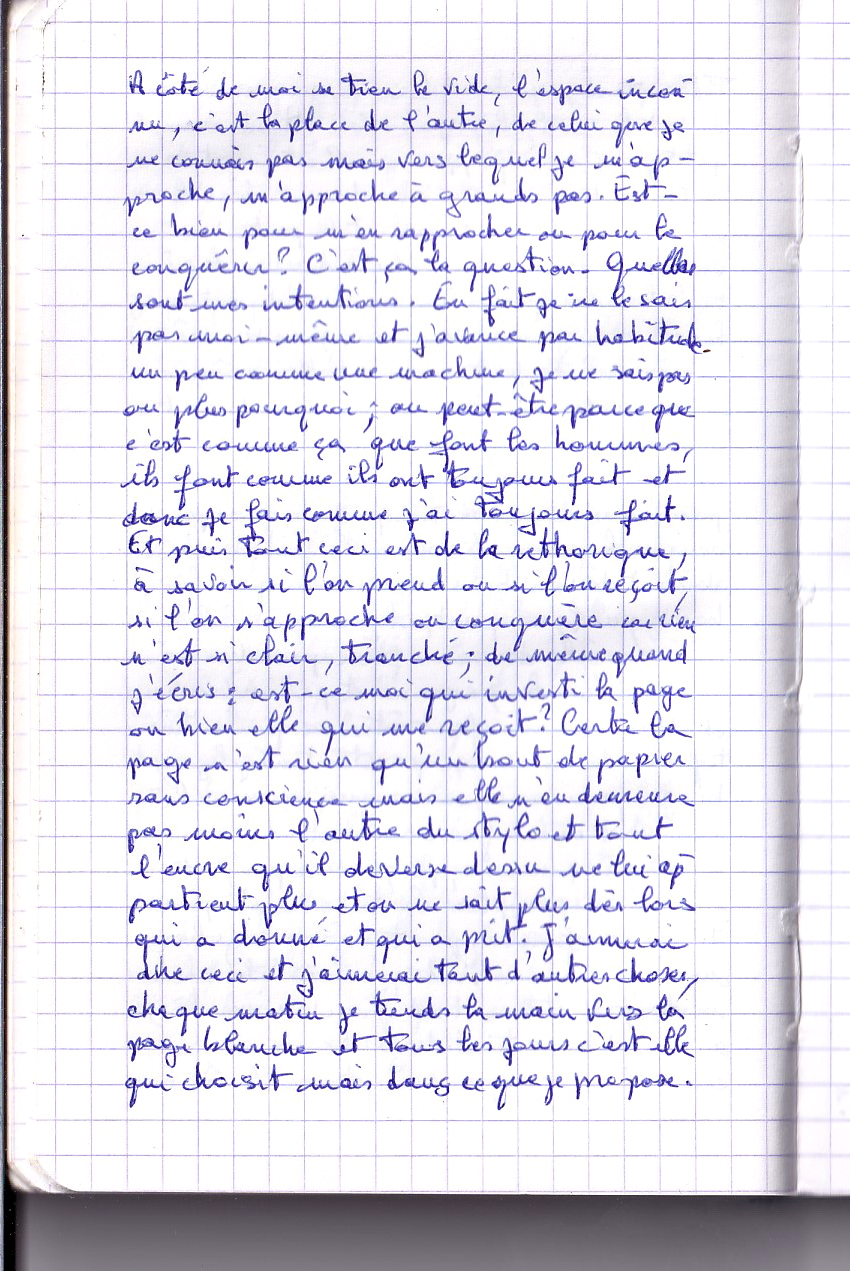 A côté de moi se tien le vide, l'espace incon
nu, c'est la place de l'autre, de celui que je
ne connais pas mais vers lequel je m'ap-
proche, m'approche à grands pas. Est-
ce bien pour m'en rapprocher ou pour le
conquérir? C'est ça la question. Quelles
sont mes intentions. En fait je ne le sais
pas moi-même et j'avance par habitude.
un peu comme une machine, je ne sais pas
ou plus pourquoi; ou peut-être parce que
c'est comme ça que font les hommes,
ils font comme ils ont toujours fait et
donc je fais comme j'ai toujours fait.
Et puis tout ceci est de la rethorique,
à savoir si l'on prend ou si l'on reçoit,
si l'on s'approche ou conquère car rien
n'est si clair, tranché; de même quand
j'écris: est-ce moi qui investi la page
ou bien elle qui me reçoit? Certe la
page n'est rien qu'un bout de papier
sans conscience mais elle n'en demeure
pas moins l'autre du stylo et tout
l'encre qu'il déverse dessu ne lui ap
partient plus et on ne sait plus dès lors
qui a donné et qui a prit. J'aimerai
dire ceci et j'aimerai tant d'autres choses,
chaque matin je tends la main vers la
page blanche et tous les jours c'est elle
qui choisit mais dans ce que je propose.